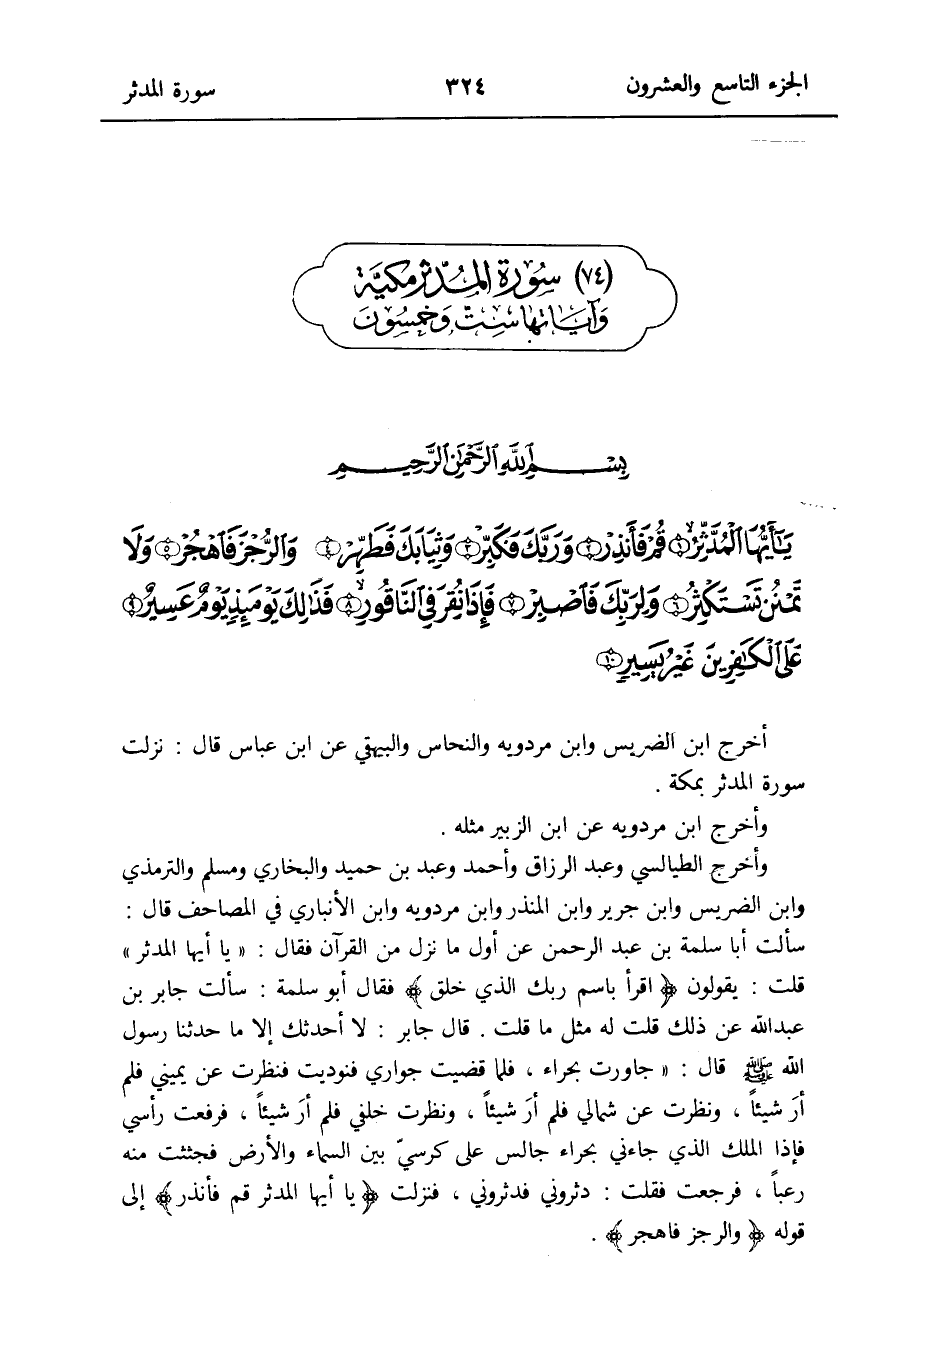 الجزء التاسع والعشرون ٣٢٤ سورة المدثر
(٧٤) سُورَة المُدَّثر مَكيَّة
وَآيَاتها سِتّ وَخَمسُونَ
بِسْمِ ٱللَّهِ ٱلرَّحْمَٰنِ ٱلرَّحِيمِ
يَٰٓأَيُّهَا ٱلْمُدَّثِّرُ ۝١ قُمْ فَأَنذِرْ ۝٢ وَرَبَّكَ فَكَبِّرْ ۝٣ وَثِيَابَكَ فَطَهِّرْ ۝٤ وَٱلرُّجْزَ فَٱهْجُرْ ۝٥ وَلَا
تَمْنُن تَسْتَكْثِرُ ۝٦ وَلِرَبِّكَ فَٱصْبِرْ ۝٧ فَإِذَا نُقِرَ فِي ٱلنَّاقُورِ ۝٨ فَذَٰلِكَ يَوْمَئِذٍ يَوْمٌ عَسِيرٌ ۝٩
عَلَى ٱلْكَٰفِرِينَ غَيْرُ يَسِيرٍ ۝١٠
أخرج ابن الضريس وابن مردويه والنحاس والبيهقي عن ابن عباس قال : نزلت
سورة المدثر بمكة .
وأخرج ابن مردويه عن ابن الزبير مثله .
وأخرج الطيالسي وعبد الرزاق وأحمد وعبد بن حميد والبخاري ومسلم والترمذي
وابن الضريس وابن جرير وابن المنذر وابن مردويه وابن الأنباري في المصاحف قال :
سألت أبا سلمة بن عبد الرحمن عن أول ما نزل من القرآن فقال : « يا أيها المدثر »
قلت : يقولون ﴿ اقرأ باسم ربك الذي خلق ﴾ فقال أبو سلمة : سألت جابر بن
عبدالله عن ذلك قلت له مثل ما قلت . قال جابر : لا أحدثك إلا ما حدثنا رسول
الله ﷺ قال : « جاورت بحراء ، فلما قضيت جواري فنوديت فنظرت عن يميني فلم
أرَ شيئاً ، ونظرت عن شمالي فلم أرَ شيئاً ، ونظرت خلفي فلم أرَ شيئاً ، فرفعت رأسي
فإذا الملك الذي جاءني بحراء جالس على كرسيّ بين السماء والأرض فجثثت منه
رعباً ، فرجعت فقلت : دثروني فدثروني ، فنزلت ﴿ يا أيها المدثر قم فأنذر ﴾ إلى
قوله ﴿ والرجز فاهجر ﴾ .